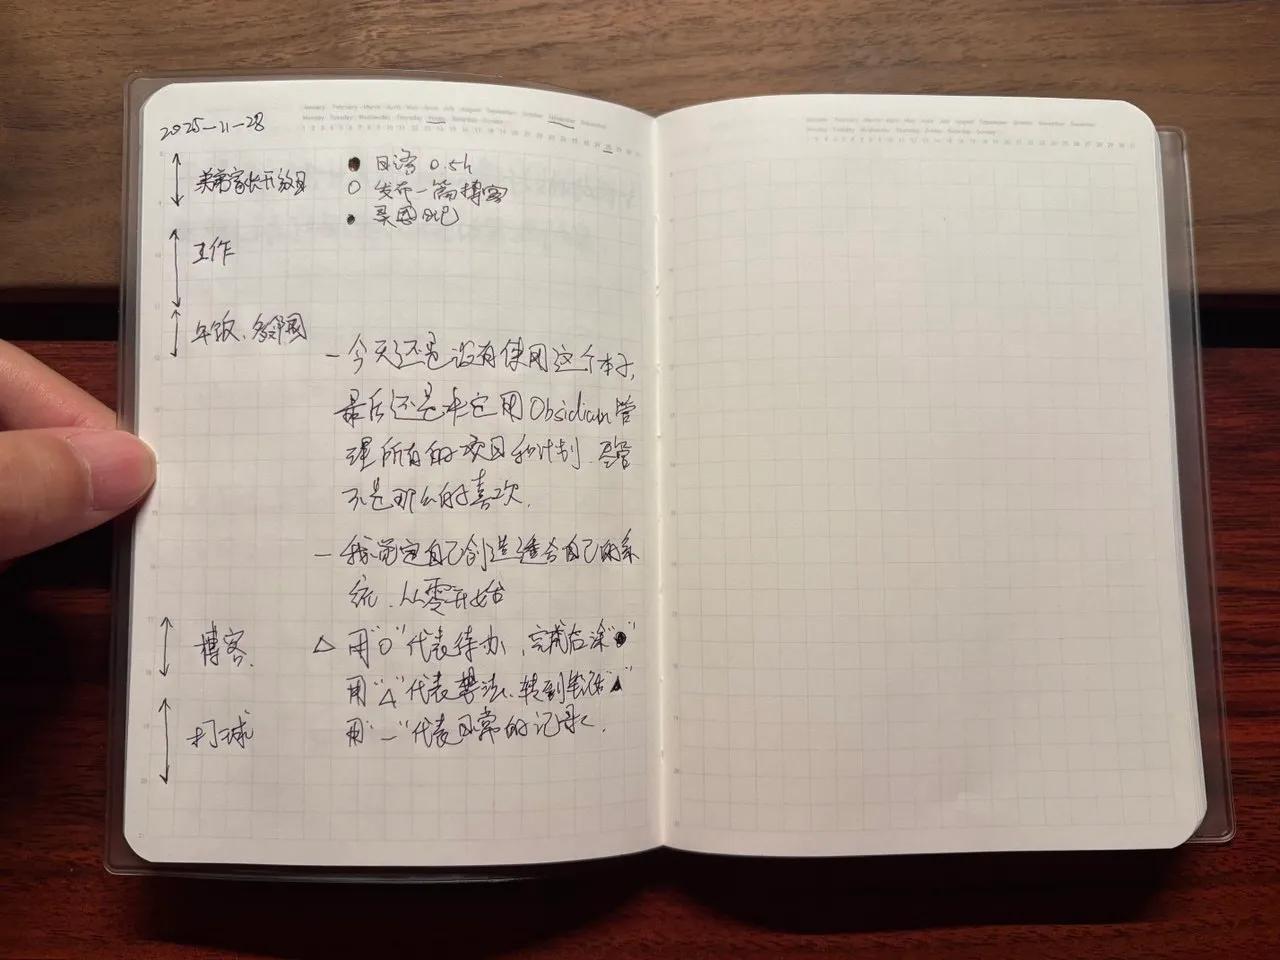 January February March April May June July August September October November December
Monday Tuesday Wednesday Thursday Friday Saturday Sunday
1 2 3 4 5 6 7 8 9 10 11 12 13 14 15 16 17 18 19 20 21 22 23 24 25 26 27 28 29 30 31
2025-11-28
家长开放日
● 日语 0.5h
○ 发布一篇博客
● 灵感日记
工作
午饭、
- 今天还是没有使用这个本子,
最后还是决定用Obsidian管
理所有的项目和计划.尽管
不是那么的喜欢.
- 我觉定自己创造适合自己的系
统.从零开始
博客.
△ 用"O"代表待办,完成后涂"●"
用"△"代表想法、转到笔记"▲"
用"—"代表日常的记录.
打球
January February March April May June July August September October November December
Monday Tuesday Wednesday Thursday Friday Saturday Sunday
1 2 3 4 5 6 7 8 9 10 11 12 13 14 15 16 17 18 19 20 21 22 23 24 25 26 27 28 29 30 31